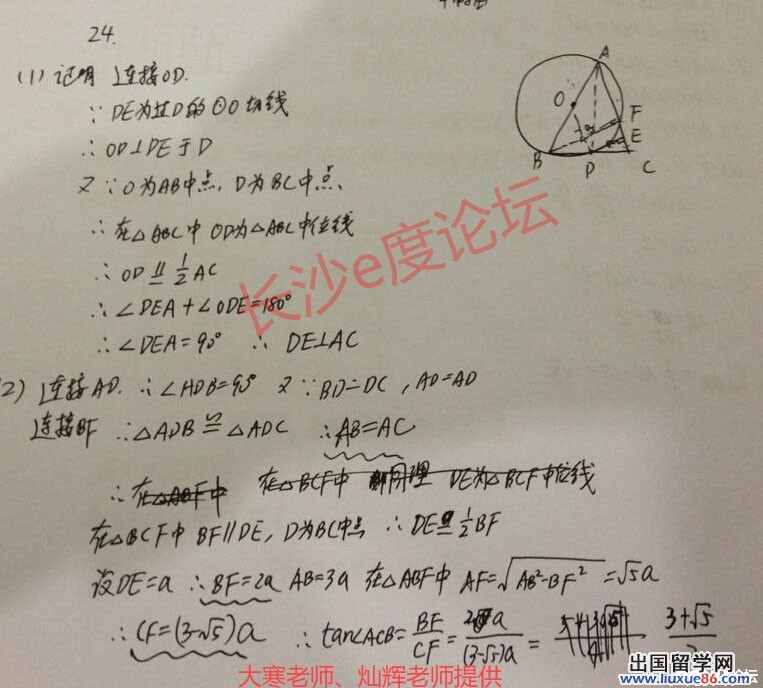 24.
(1) 证明 连接OD.
∵ DE为过D的⊙O切线
∴ OD⊥DE于D
又∵O为AB中点, D为BC中点、
∴ 在△ABC中 OD为△ABC中位线
∴ OD ∥= 1/2 AC
∴ ∠DEA+∠ODE=180°
∴ ∠DEA=90° ∴ DE⊥AC
A
O
F
E
B
D
C
长沙e度论坛
2) 连接AD. ∴∠ADB=90° 又∵BD=DC, AD=AD
连接BF ∴△ADB≌△ADC ∴AB=AC
∴ 在△ABF中 在△BCF中 同理 DE为△BCF中位线
在△BCF中 BF∥DE, D为BC中点 ∴ DE ∥= 1/2 BF
设DE=a ∴BF=2a AB=3a 在△ABF中 AF=√(AB²-BF²)=√5a
∴ CF=(3-√5)a ∴ tan∠ACB= BF/CF = 2a/((3-√5)a) = (3+√5)/2
大寒老师、灿辉老师提供
出国留学网
www.liuxue86.com
论坛